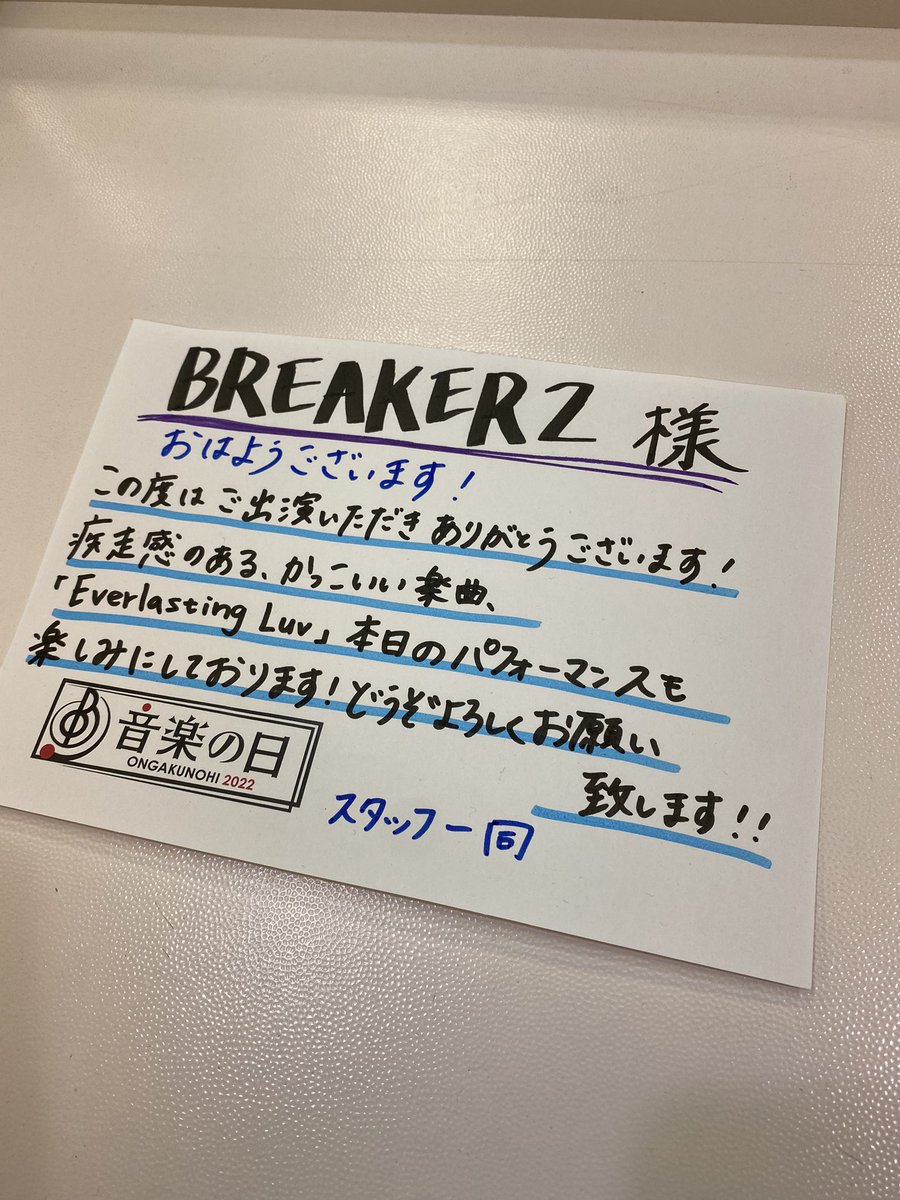 BREAKERZ 様
おはようございます!
この度はご出演いただきありがとうございます!
疾走感のある、かっこいい楽曲、
「Everlasting Luv」本日のパフォーマンスも
楽しみにしております!どうぞよろしくお願い
致します!!
音楽の日
ONGAKUNOHI 2022
スタッフ一同